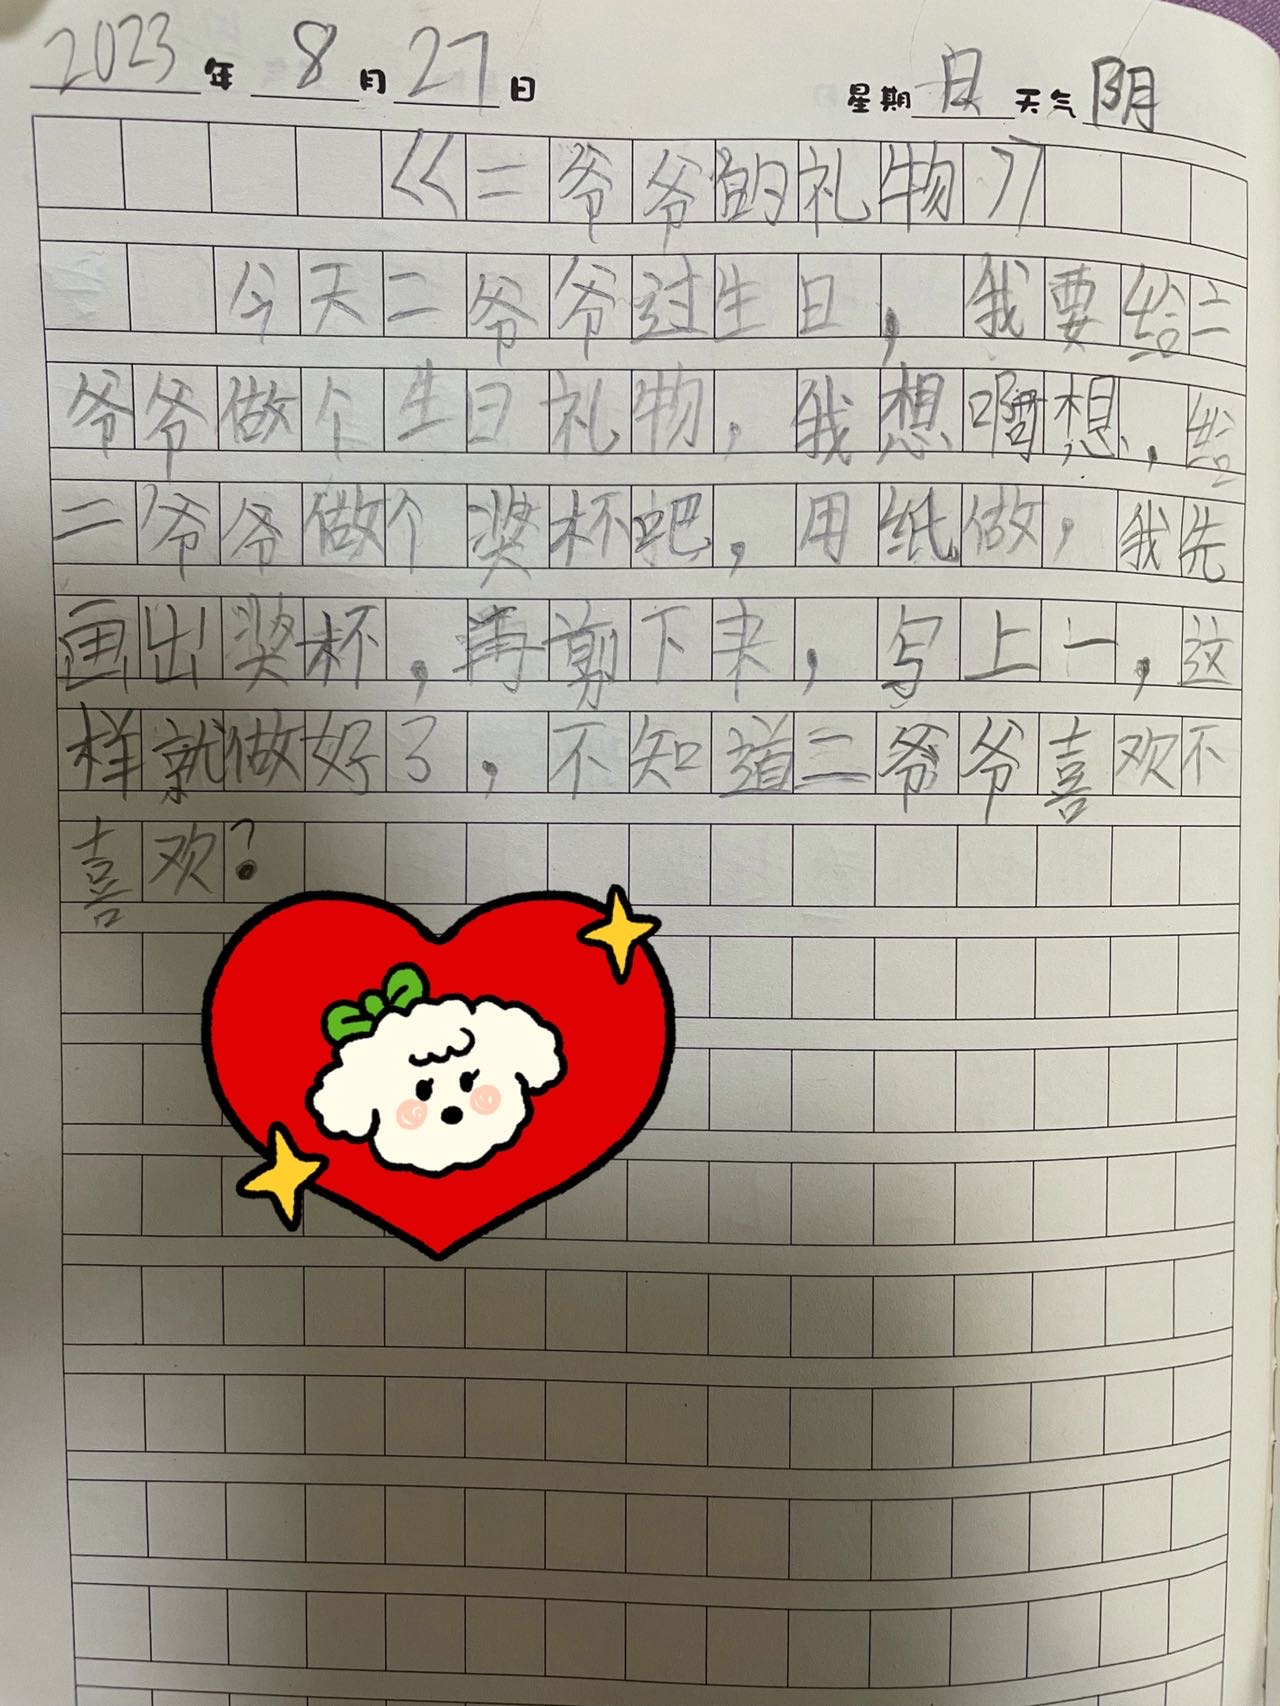 2023年8月27日 星期日天气阴
《二爷爷的礼物》
今天二爷爷过生日，我要给二
爷爷做个生日礼物，我想啊想，给
二爷爷做个奖杯吧，用纸做，我先
画出奖杯，再剪下来，写上一，这
样就做好了，不知道二爷爷喜欢不
喜欢？